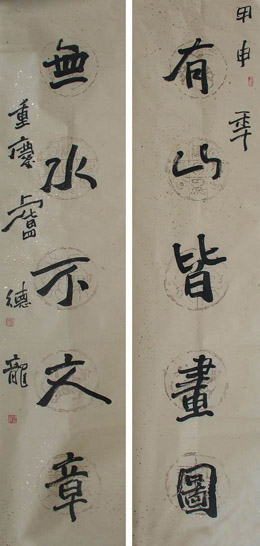 甲申年
有山皆畫圖
無水不文章
重慶盧德龍